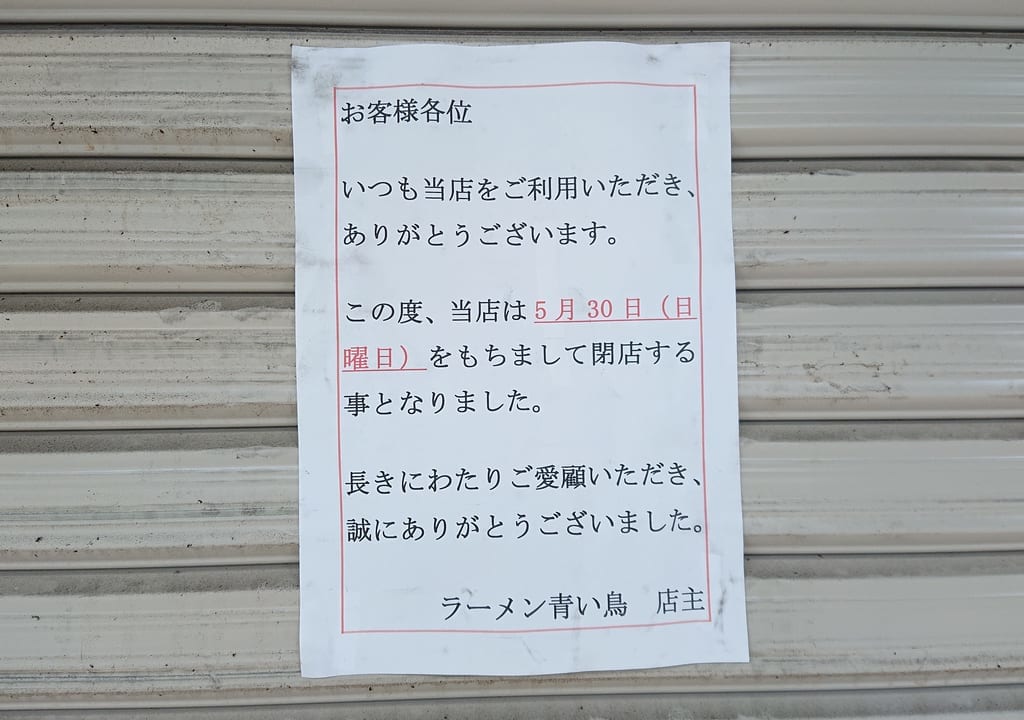 お客様各位
いつも当店をご利用いただき、
ありがとうございます。
この度、当店は5月30日（日
曜日）をもちまして閉店する
事となりました。
長きにわたりご愛顧いただき、
誠にありがとうございました。
ラーメン青い鳥　店主